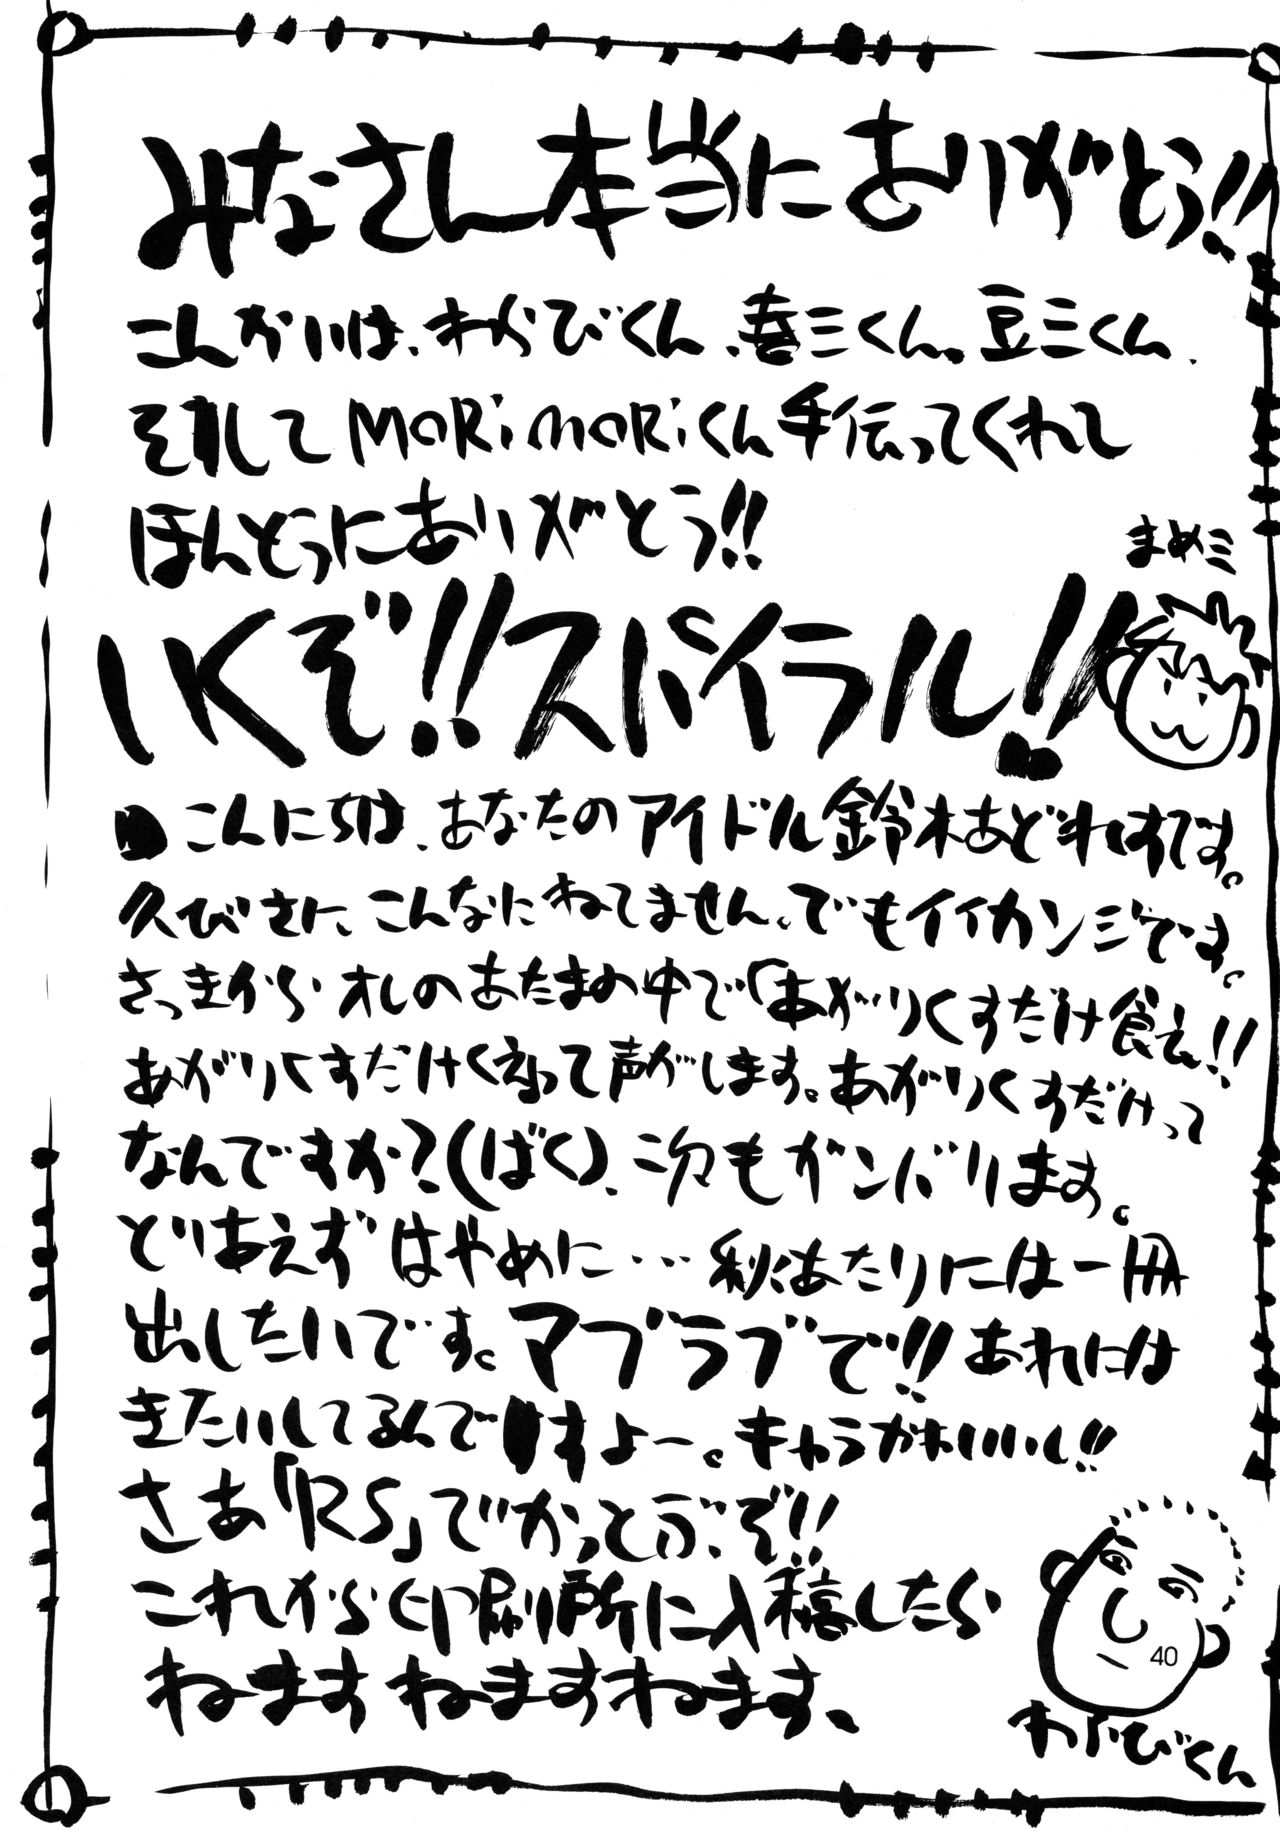 みなさん本当にありがとう!!
こんかいは、わらびくん、春三くん。豆三くん、
そしてMORiMORiくん手伝ってくれて
ほんとうにありがとう!!
まめ三
いくぞ!!スパイラル!!
こんにちは、あなたのアイドル鈴木あどれすです。
久びさに、こんなにねてません、でもイイカンジです。
さっきからオレのあたまの中で「あがりくすだけ食え!!
あがりくすだけくえって声がします。あがりくすだけって
なんですか?(ばく)、次もガンバリます。
とりあえずはやめに…秋あたりには一冊
出したいです。マブラブで!!あれには
きたいしてるんですよー。キャラかわいいし!!
さあ「RS」でかっとぶぞ!!
これから印刷所に入稿したら
ねますねますねます、
40
わらびくん